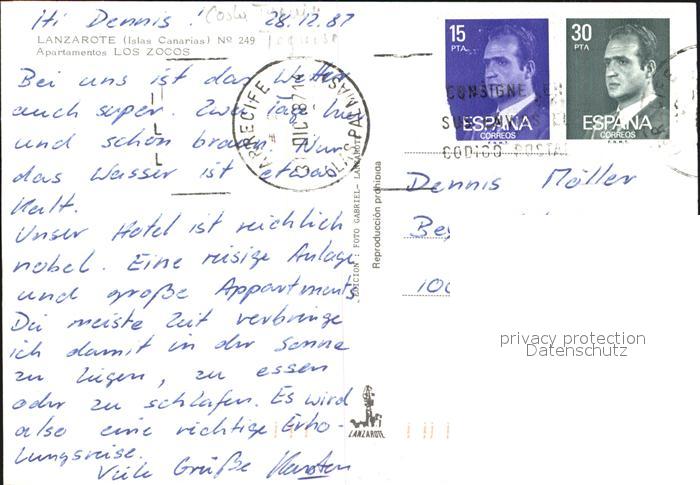 Hi Dennis! 28.12.87
LANZAROTE (Islas Canarias) Nº 249
Apartamentos LOS ZOCOS
Bei uns ist das Wetter
auch super. Zwei Tage hier
und schön braun. Nur
das Wasser ist etwas
kalt.
Unser Hotel ist reichlich
nobel. Eine riesige Anlage
und große Appartments
Die meiste Zeit verbringe
ich damit in der Sonne
zu liegen, zu essen
oder zu schlafen. Es wird
also eine richtige Erho-
lungsreise.
Viele Grüße Karsten
ARRECIFE
LAS PALMAS
EDICION: FOTO GABRIEL - LANZAROTE
Reproducción prohibida
LANZAROTE
15
PTA
ESPAÑA
CORREOS
30
PTA
ESPAÑA
CORREOS
CONSIGNE
CODIGO POSTAL
Dennis Möller
Be
100
privacy protection
Datenschutz